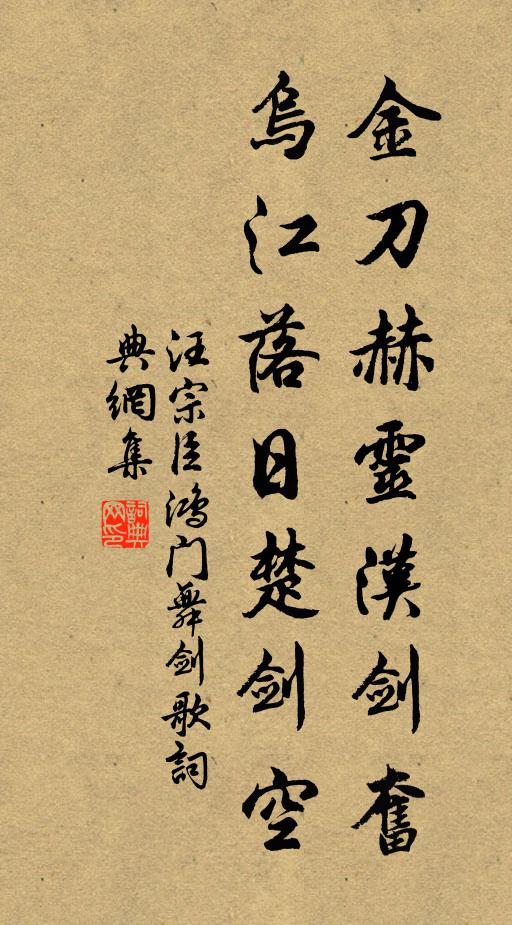 金刀赫靈漢剑奮
烏江落日楚剑空
汪宗臣鴻门舞剑歌詞
典網集
詞典
网印